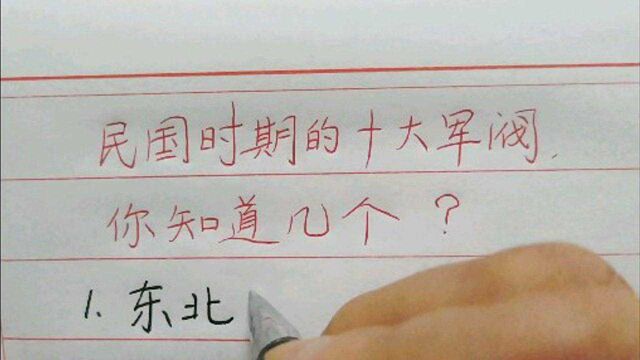 民国时期的十大军阀,
你知道几个?
1. 东北